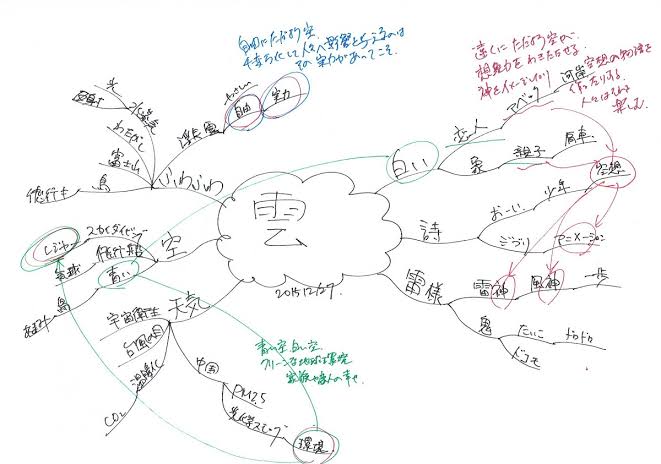 自由にただよう空。
千変万化して人々へ影響を与えるのは
その実力があってこそ。
遠くにただよう空が、
想像力をわきたたせる。
神をイメージしたり
空想の物語を
作ったりする。
人々はそれを
楽しむ。
雲
2015.12/27.
ふわふわ
浮雲
やさしい
自由
実力
光
水蒸気
わたがし
富士山
鳥
飛行士
空
スカイダイビング
レジャー
飛行機
青い
鳥
天気
宇宙衛生
台風の目
温暖化
CO2
中国
PM2.5
光化学スモッグ
環境
青い空、白い空。
クリーンな地球は
白い
恋人
アベック
河岸
象
親子
馬車
空想
詩
おーい
少年
ちぎり
アニメーション
雷様
雷神
風神
一歩
鬼
たいこ
ドカドカ
ドコモ